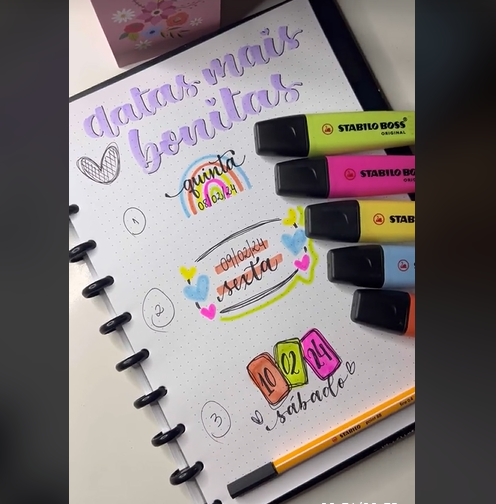 datas mais
bonitas
1
quinta
08/02/24
2
09/02/24
sexta
3
10 02 24
sábado
STABILO BOSS
ORIGINAL
STABILO BOSS
STAB
STABILO